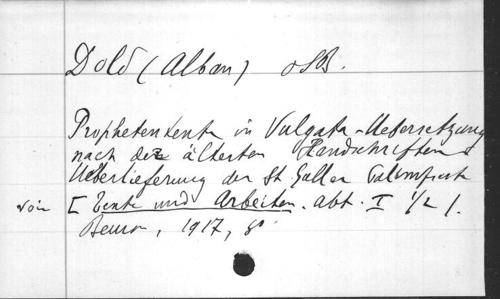 Dold (Alban) OSB.
Prophetentexte in Vulgata-Uebersetzung
nach der ältesten Handschriften-
Ueberlieferung der St. Galler Palimpseste
voir [Texte und Arbeiten. abt. I 1/2].
Beuron, 1917, 8°